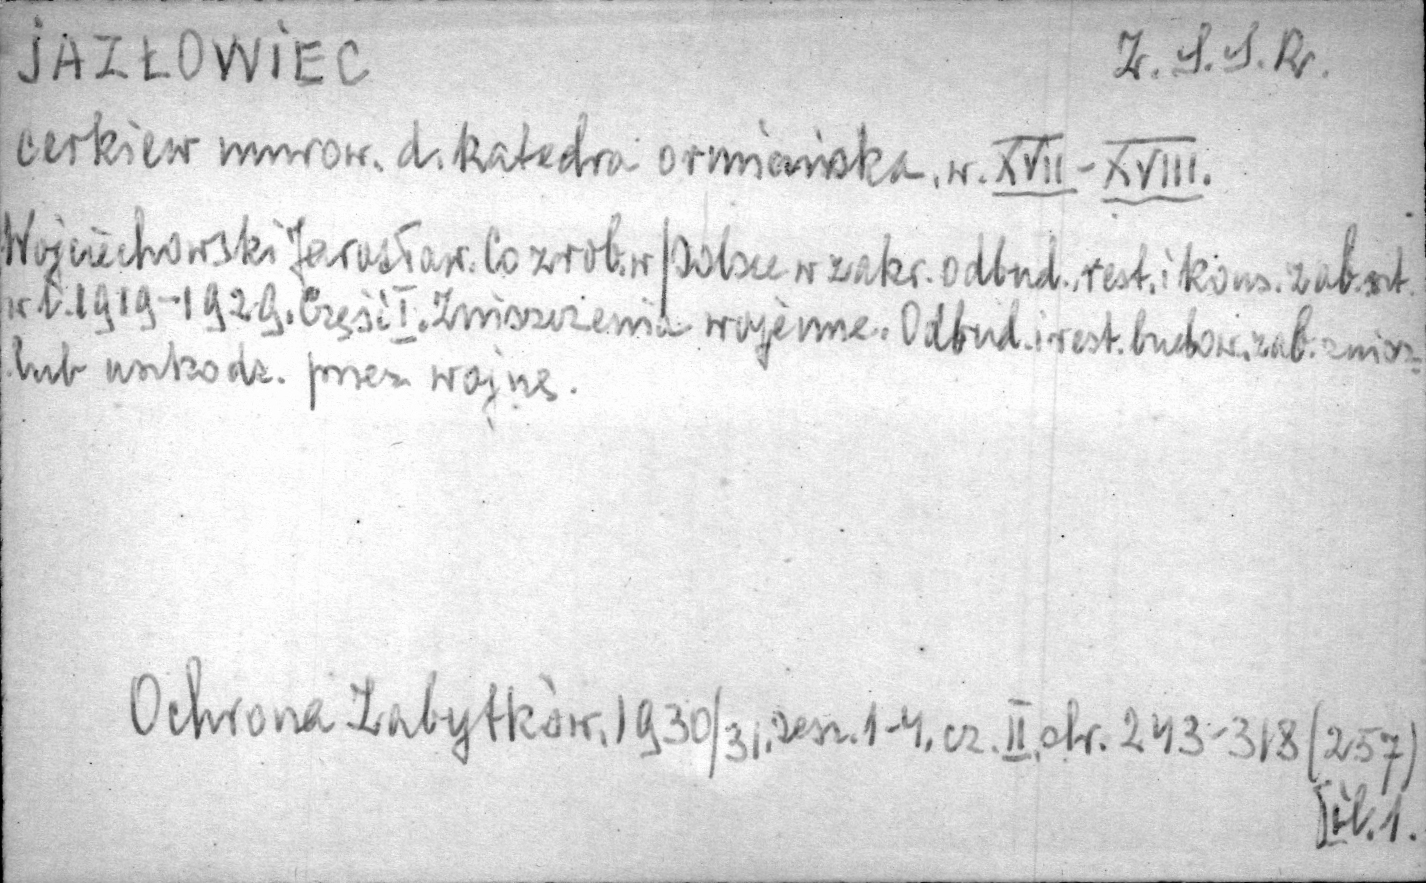 JAZŁOWIEC
Z. S. S. R.
cerkiew murow. d. katedra ormiańska, w. XVII - XVIII.
Wojciechowski Jarosław. Co zrob. w Polsce w zakr. odbud., rest. i kons. zab. szt.
w l. 1919-1929. Część I. Zniszczenia wojenne. Odbud. i rest. budow. zab. znisz.
lub uszkodz. przez wojnę.
Ochrona Zabytków. 1930/31, zesz. 1-4, cz. II, str. 243-318 (257)
il. 1.